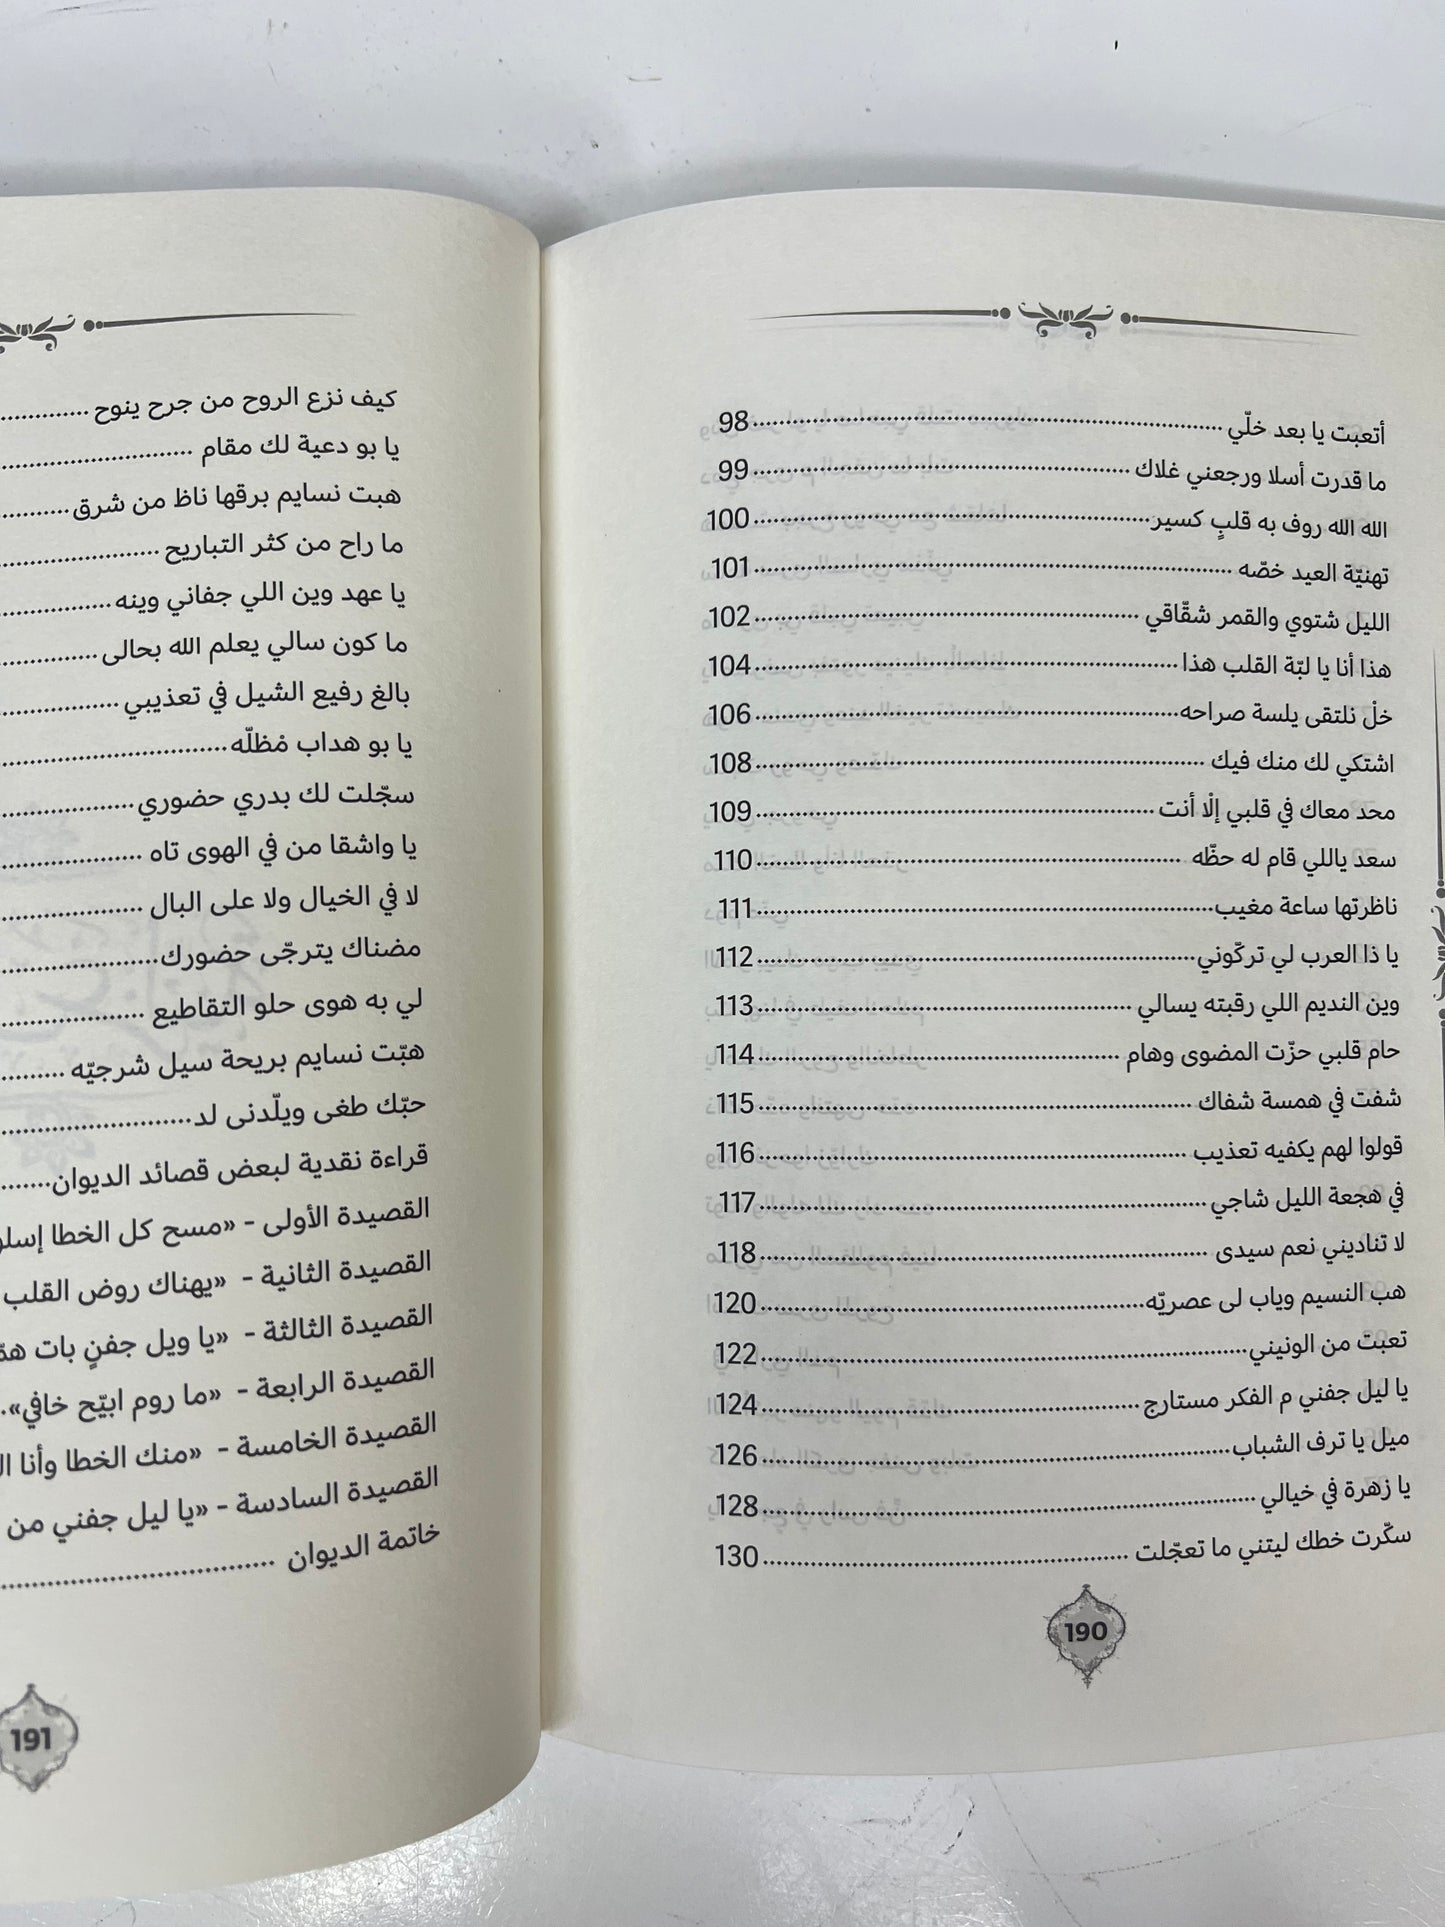 أتعبت يا بعد خلّي ........ 98
ما قدرت أسلا ورجعني غلاك ........ 99
الله الله روف به قلبٍ كسير ........ 100
تهنيّة العيد خصّه ........ 101
الليل شتوي والقمر شقّاقي ........ 102
هذا أنا يا لبّة القلب هذا ........ 104
خلْ نلتقى يلسة صراحه ........ 106
اشتكي لك منك فيك ........ 108
محد معاك في قلبي إلْا أنت ........ 109
سعد ياللي قام له حظّه ........ 110
ناظرتها ساعة مغيب ........ 111
يا ذا العرب لي تركّوني ........ 112
وين النديم اللي رقبته يسالي ........ 113
حام قلبي حزّت المضوى وهام ........ 114
شفت في همسة شفاك ........ 115
قولوا لهم يكفيه تعذيب ........ 116
في هجعة الليل شاجي ........ 117
لا تناديني نعم سيدى ........ 118
هب النسيم وياب لى عصريّه ........ 120
تعبت من الونيني ........ 122
يا ليل جفني م الفكر مستارج ........ 124
ميل يا ترف الشباب ........ 126
يا زهرة في خيالي ........ 128
سكّرت خطك ليتني ما تعجّلت ........ 130
190
كيف نزع الروح من جرح ينوح ........
يا بو دعية لك مقام ........
هبت نسايم برقها ناظ من شرق ........
ما راح من كثر التباريح ........
يا عهد وين اللي جفاني وينه ........
ما كون سالي يعلم الله بحالى ........
بالغ رفيع الشيل في تعذيبي ........
يا بو هداب مْظلّه ........
سجّلت لك بدري حضوري ........
يا واشقا من في الهوى تاه ........
لا في الخيال ولا على البال ........
مضناك يترجّى حضورك ........
لي به هوى حلو التقاطيع ........
هبّت نسايم بريحة سيل شرجيّه ........
حبّك طغى ويلّدنى لد ........
قراءة نقدية لبعض قصائد الديوان ........
القصيدة الأولى - «مسح كل الخطا
القصيدة الثانية - «يهناك روض القلب
القصيدة الثالثة - «يا ويل جفنٍ بات
القصيدة الرابعة - «ما روم ابيّح خافي».
القصيدة الخامسة - «منك الخطا وأنا
القصيدة السادسة - «يا ليل جفني من
خاتمة الديوان ........
191